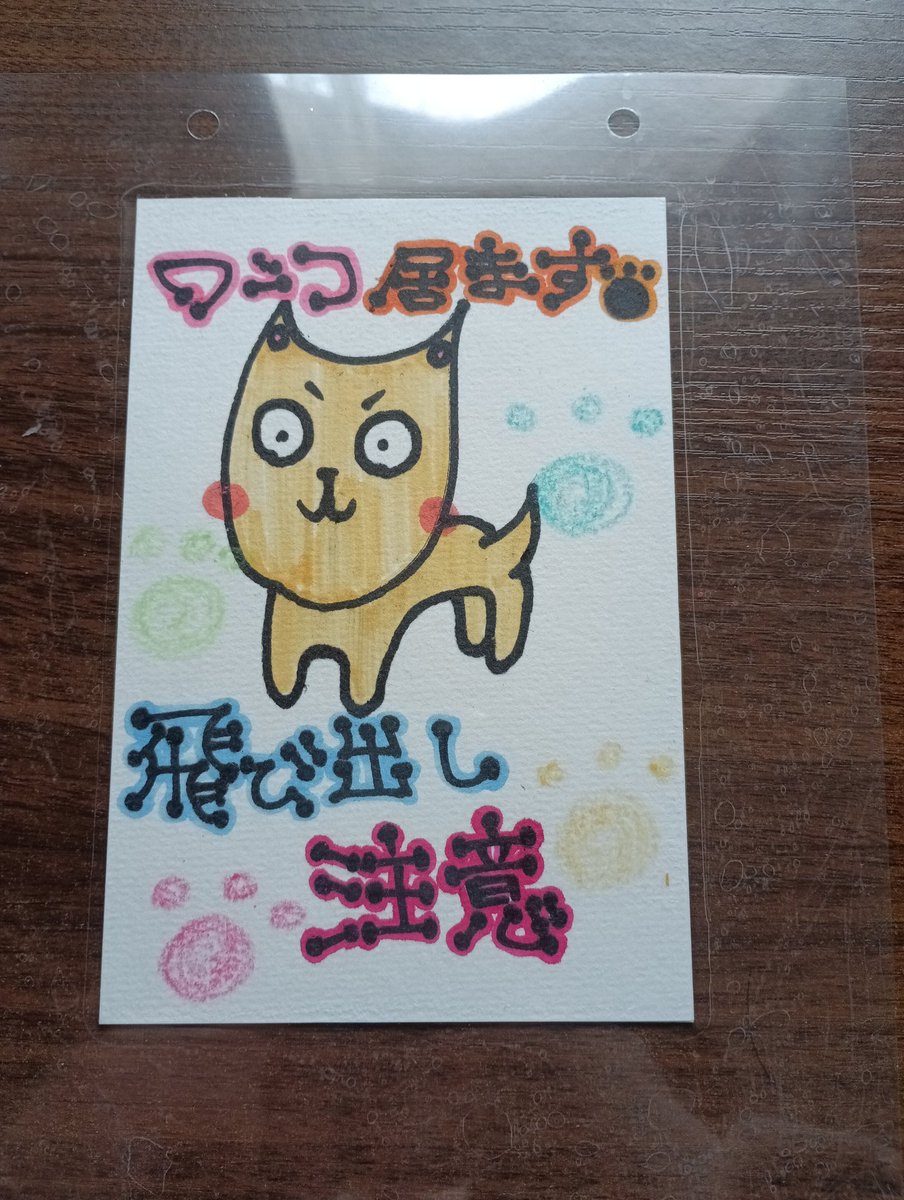 ワンコ居ます
飛び出し
注意